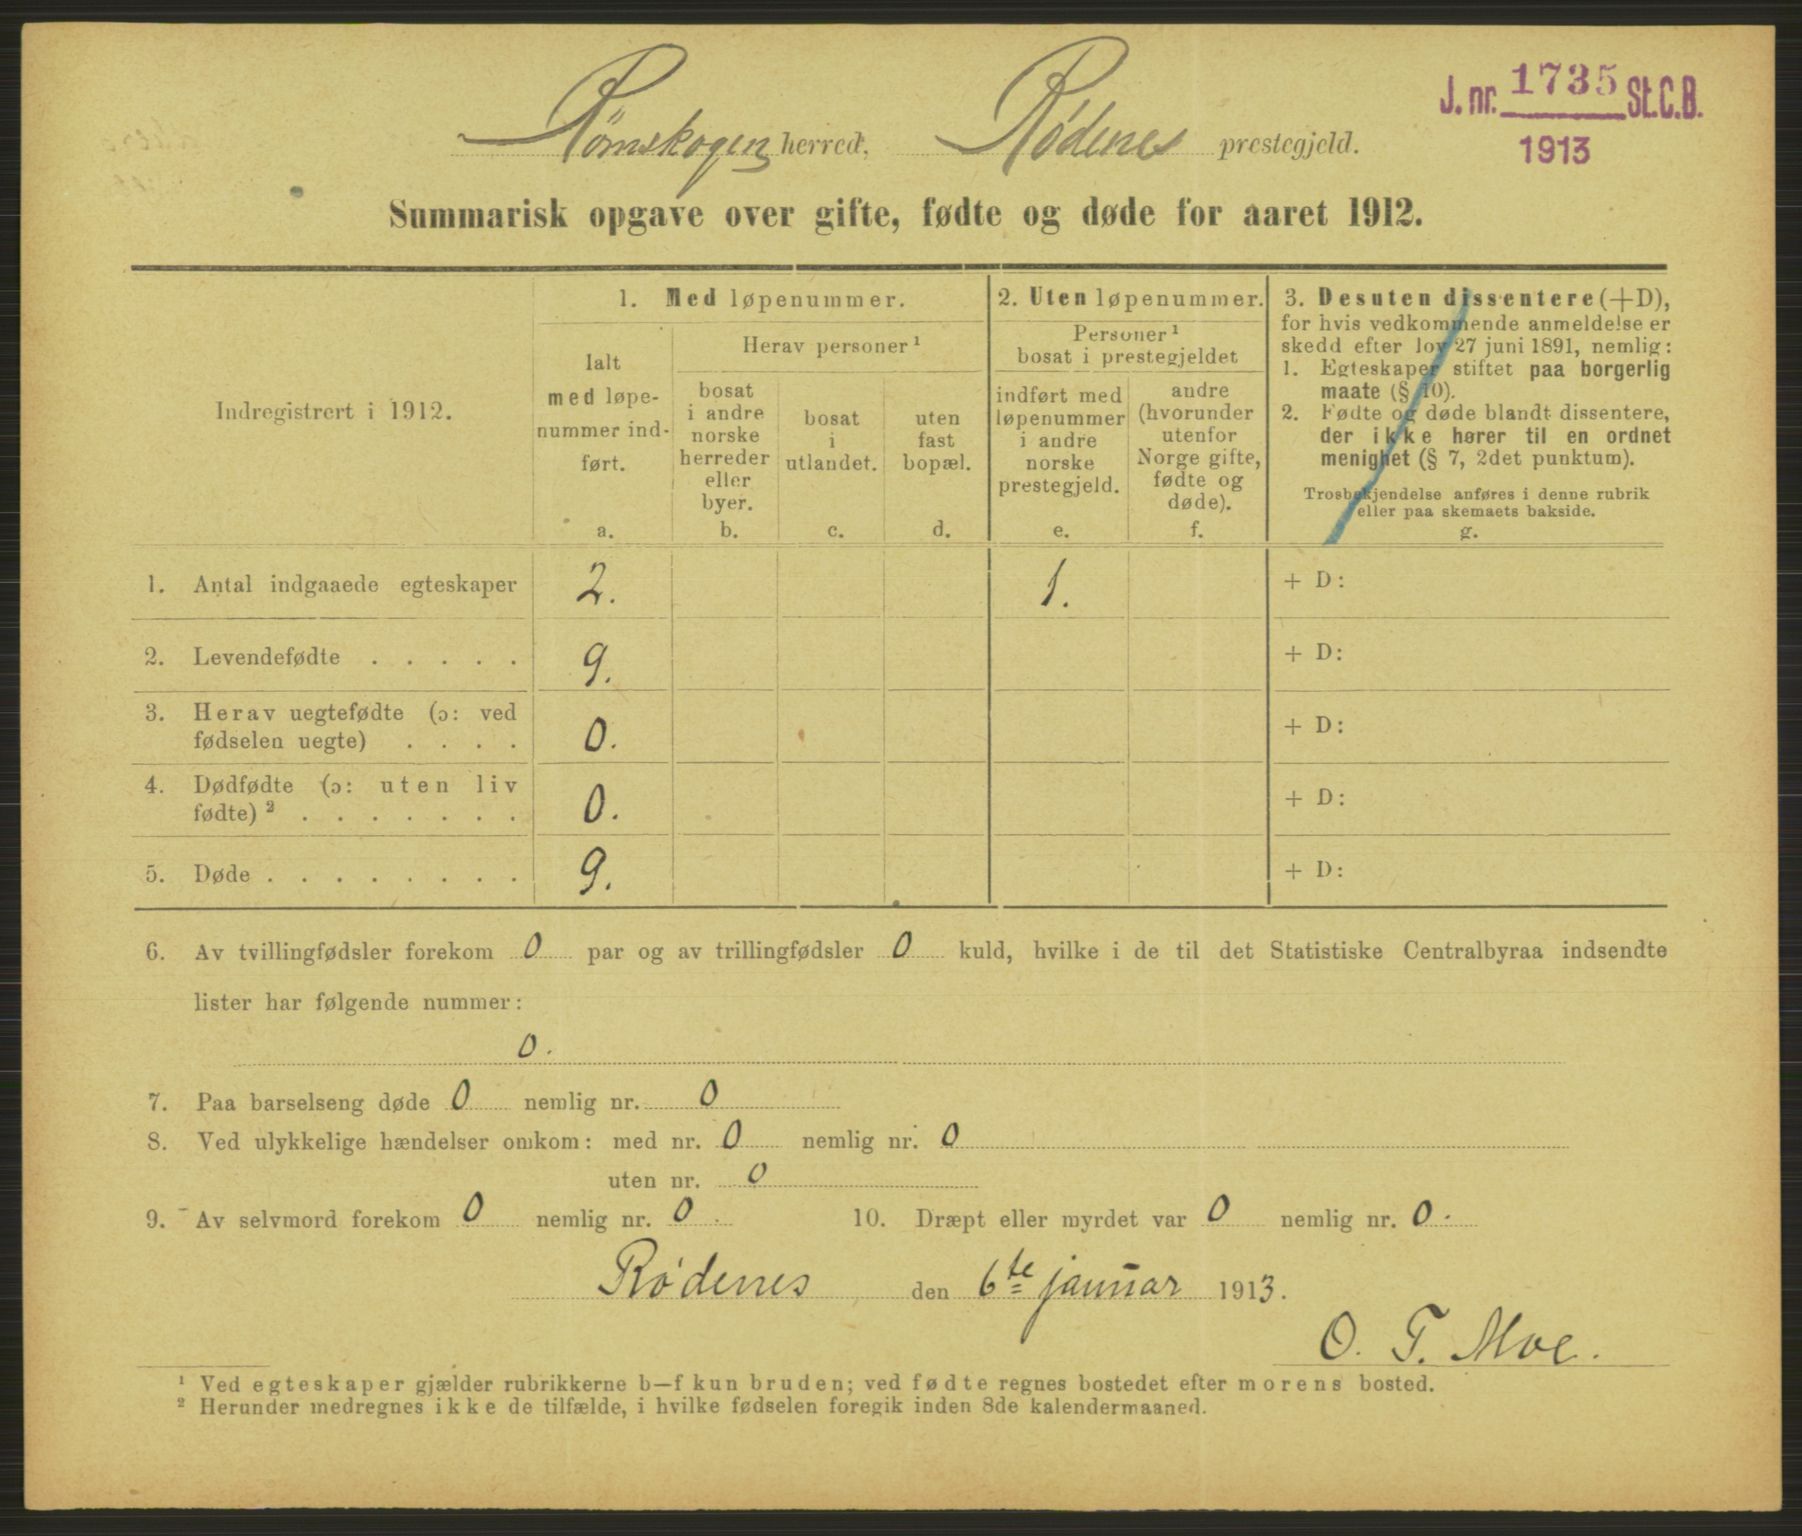 Rømskogen herred. Rødenes prestegjeld.
J. nr. 1735 St. C. B.
1913
Summarisk opgave over gifte, fødte og døde for aaret 1912.
Indregistrert i 1912.
1. Med løpenummer.
Ialt
med løpe-
nummer ind-
ført.
a.
Herav personer ¹
bosat
i andre
norske
herreder
eller
byer.
b.
bosat
i
utlandet.
c.
uten
fast
bopæl.
d.
2. Uten løpenummer.
Personer ¹
bosat i prestegjeldet
indført med
løpenummer
i andre
norske
prestegjeld.
e.
andre
(hvorunder
utenfor
Norge gifte,
fødte og
døde).
f.
3. Desuten dissentere (+D),
for hvis vedkommende anmeldelse er
skedd efter lov 27 juni 1891, nemlig:
1. Egteskaper stiftet paa borgerlig
maate (§ 10).
2. Fødte og døde blandt dissentere,
der ikke hører til en ordnet
menighet (§ 7, 2det punktum).
Trosbekjendelse anføres i denne rubrik
eller paa skemaets bakside.
g.
1. Antal indgaaede egteskaper 2. 1. + D:
2. Levendefødte . . . . . 9. + D:
3. Herav uegtefødte (ɔ: ved
fødselen uegte) . . . . 0. + D:
4. Dødfødte (ɔ: uten liv
fødte) ² . . . . . . . 0. + D:
5. Døde . . . . . . . . 9. + D:
6. Av tvillingfødsler forekom 0 par og av trillingfødsler 0 kuld, hvilke i de til det Statistiske Centralbyraa indsendte
lister har følgende nummer:
0.
7. Paa barselseng døde 0 nemlig nr. 0
8. Ved ulykkelige hændelser omkom: med nr. 0 nemlig nr. 0
uten nr. 0
9. Av selvmord forekom 0 nemlig nr. 0. 10. Dræpt eller myrdet var 0 nemlig nr. 0.
Rødenes den 6te januar 1913.
O. T. Moe.
¹ Ved egteskaper gjælder rubrikkerne b—f kun bruden; ved fødte regnes bostedet efter morens bosted.
² Herunder medregnes ikke de tilfælde, i hvilke fødselen foregik inden 8de kalendermaaned.